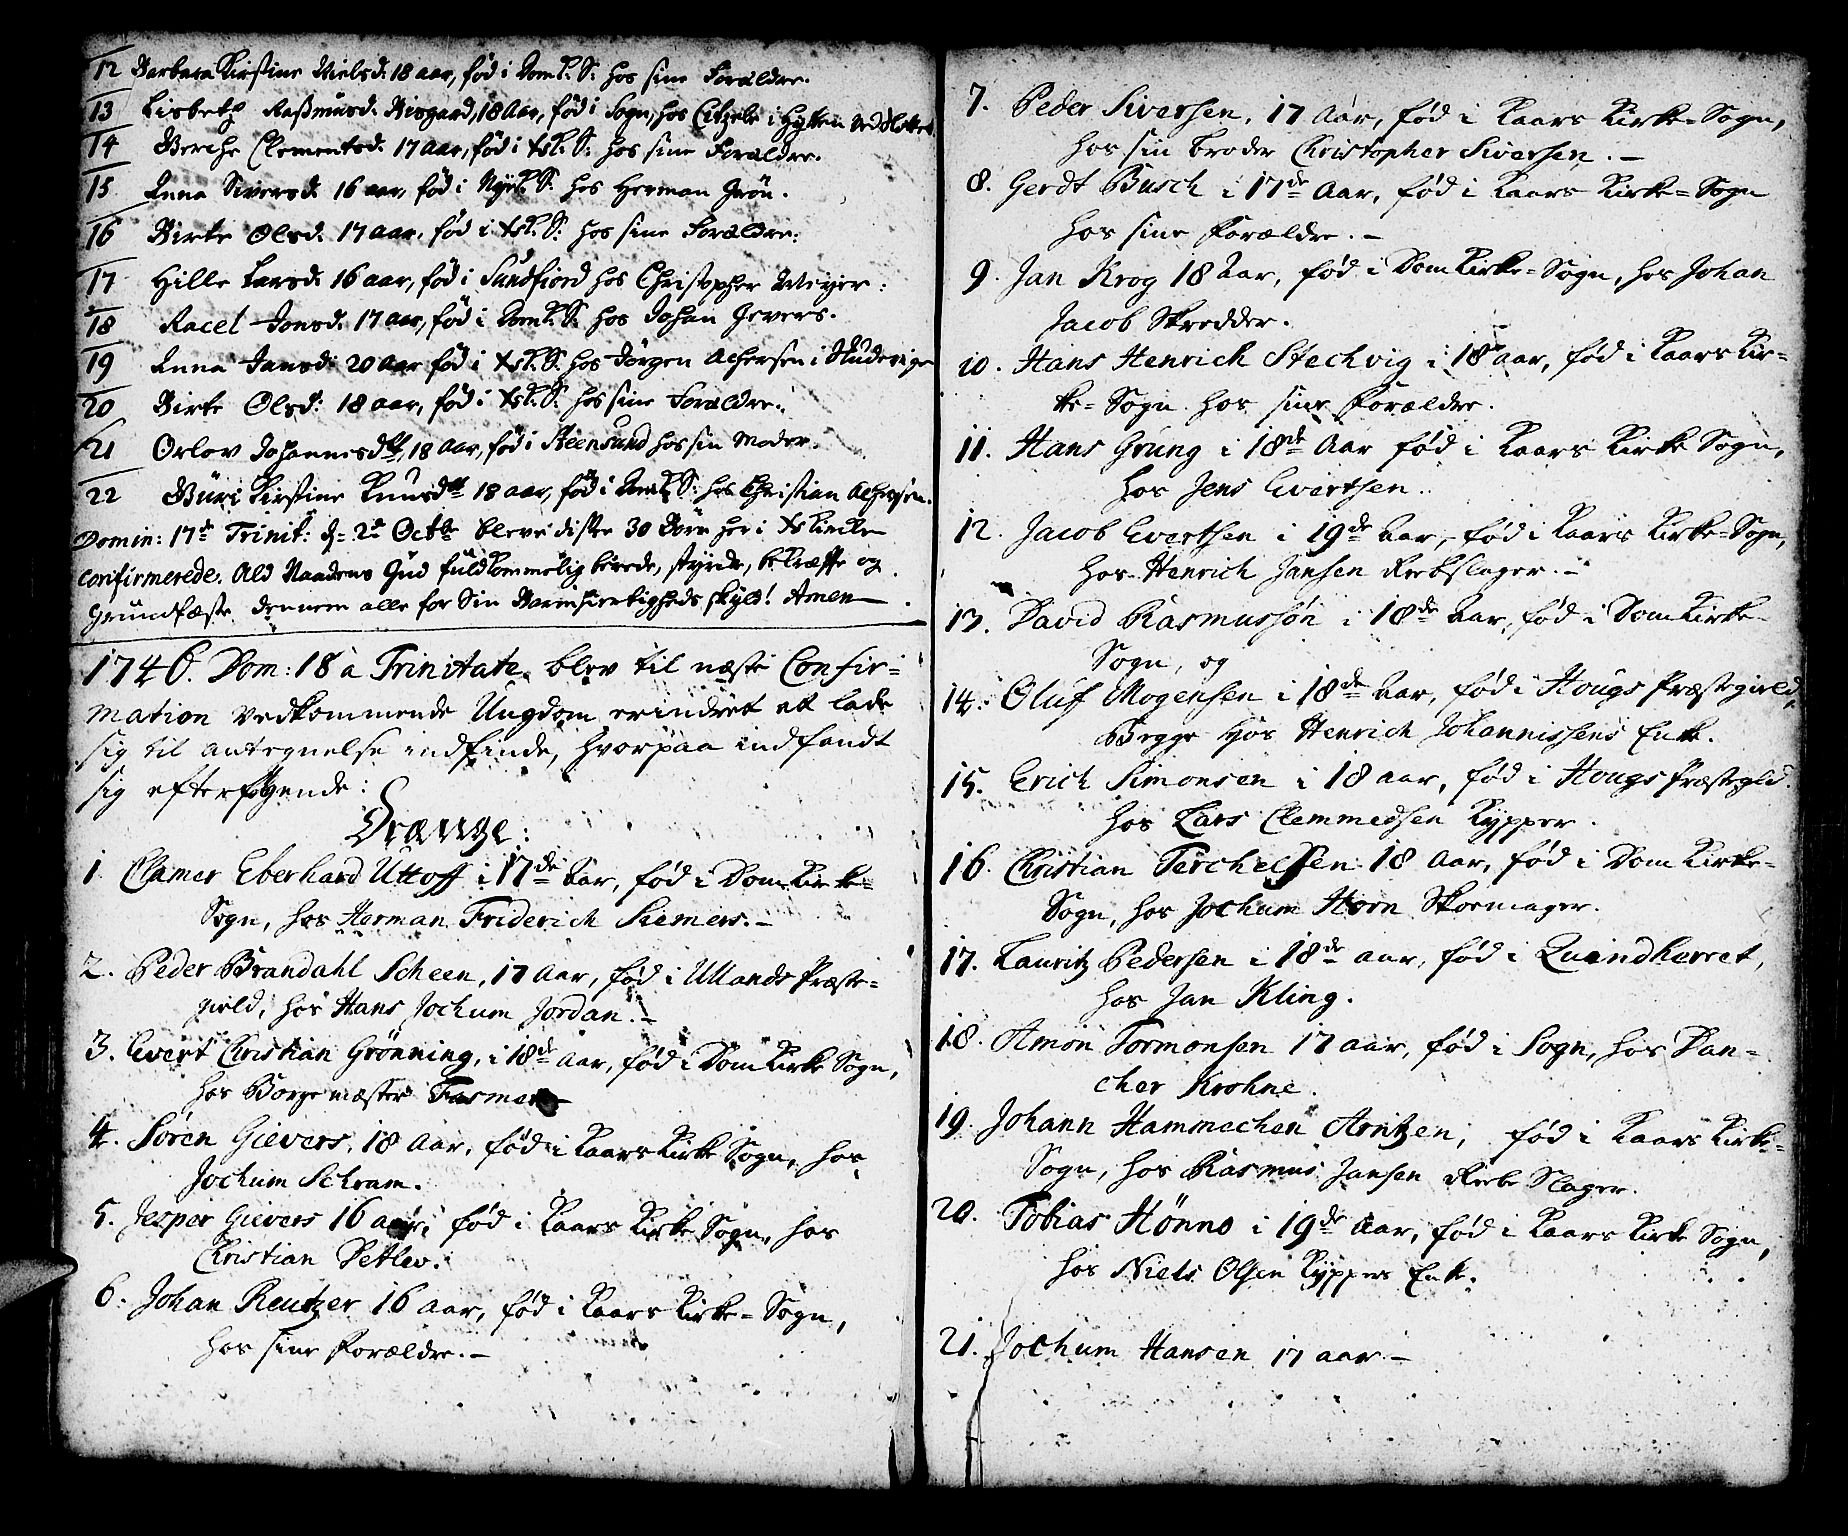 12 Barbara Kirstine Nielsd. 18 aar, fød i DomK. S. hos sine Forældre.
13 Lisbeth Rasmusd. Bisgard, 18 Aar, fød i Sogn, hos i Hytten ved
14 Berthe Clementsd. 17 Aar, fød i †K. S. hos sine Forældre.
15 Anna Siversd. 16 aar, fød i NyeK. S. hos Herman Grøn.
16 Birte Olsd. 17 aar, fød i †K. S. hos sine Forældre.
17 Hille Larsd. 16 aar, fød i Sundfiord hos Christopher Meyer:
18 Racel Jonsd. 17 aar, fød i DomK. S. hos Johan Gevers.
19 Anna Jansd. 20 aar fød i †K. S. hos Jørgen Achersen i Skudevigen
20 Birte Olsd: 18 aar, fød i †K. S. hos sine Forældre.
21 Orlov Johannesdtr, 18 Aar, fød i Steensund hos sin Moder.
22 Büri Kirstine Knudsdtr 18 aar, fød i DomK. S: hos Christian Achersen.
Domin: 17de Trinit: d. 2de Octbr bleve disse 30 Børn her i †Kirken
confirmerede. Ald Naadens Gud fuldkommelig berede, styrke, bekræfte og
Grundfæste dennem alle for Sin Barmhiertigheds skyld! Amen.
1746. Dom: 18 a Trinitate blev til næste Confir=
mation vedkommende Ungdom erindret at lade
sig til antegnelse indfinde, hvorpaa indfandt
sig efterfølgende:
Drænge:
1. Clamer Eberhard Uttoff i 17de Aar, fød i Dom Kirke=
Sogn, hos Herman Friderich Siemers.-
2. Peder Brandahl Scheen, 17 Aar, fød i Ullands Præste=
gield, hos Hans Jochum Jordan.-
3. Evert Christian Grønning, i 18de Aar, fød i Dom Kirke Sogn,
hos Borgemæster Fasmer
4. Søren Gievers, 18 Aar, fød i Kaars Kirke Sogn, hos
Jochum Schram.
5. Jesper Gievers 16 aar, fød i Kaars Kirke Sogn, hos
Christian Detlev.
6. Johan Reutzer 16 aar, fød i Kaars Kirke=Sogn,
hos sine Forældre.-
7. Peder Siversen, 17 Aar, fød i Kaars Kirke=Sogn,
hos sin broder Christopher Siversen.-
8. Gerdt Busch i 17de Aar, fød i Kaars Kirke=Sogn
hos sine Forældre.-
9. Jan Krog 18 Aar, fød i Dom Kirke=Sogn, hos Johan
Jacob Skredder.
10. Hans Henrich Stechvig i 18de aar, fød i Kaars Kir=
ke=Sogn hos sine Forældre.
11. Hans Grung i 18de Aar fød i Kaars Kirke Sogn,
hos Jens Evertsen.
12. Jacob Evertsen i 19de Aar, fød i Kaars Kirke=Sogn,
hos Henrich Jansen Rebslager.-
13. David Rasmussøn i 18de Aar, fød i Dom Kirke=
Sogn, og
14. Oluf Mogensen i 18de Aar, fød i Hougs Præstegield,
Begge hos Henrich Johannissens Enke.
15. Erich Simonsen i 18 aar, fød i Hougs Præstegld.
hos Lars Clemmedsen Kypper.
16. Christian Terchelsen 18 Aar, fød i Dom Kirke=
Sogn, hos Jochum Horn Skoemager.
17. Lauritz Pedersen i 18de aar, fød i Quindherret,
hos Jan Kling.
18. Amon Tormonsen 17 aar, fød i Sogn, hos Dan=
cher Krohne.
19. Johann Hammechen Arntzen, fød i Kaars Kirke=
Sogn, hos Rasmus Jansen Rebe Slager.
20. Tobias Hønno i 19de Aar, fød i Kaars Kirke Sogn,
hos Niels Olsen Kyppers Enke.
21. Jochum Hansen 17 aar-